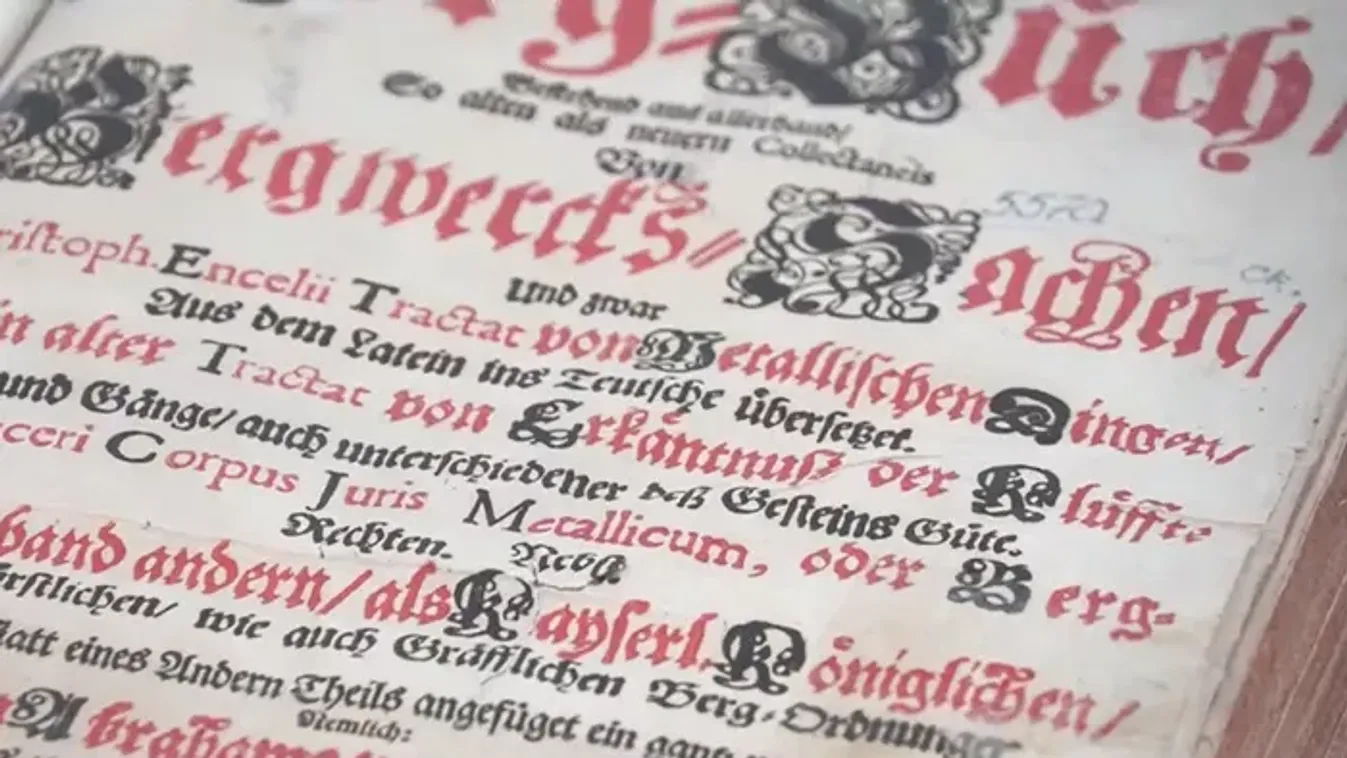 rg=Büch/
Bestehend aus allerhand/
So alten als neuern Collectaneis
Von
Bergwercks=Sachen/
Und zwar
ristoph. Encelii Tractat von Metallischen Dingen/
Aus dem Latein ins Teutsche übersetzet.
in alter Tractat von Erkåntnuß der Klüffte
und Gänge/ auch unterschiedener deß Gesteins Güte.
cceri Corpus Juris Metallicum, oder Berg=
Rechten. Nebst
band andern/ als Kayserl. Königlichen/
ürstlichen/ wie auch Gräfflichen Berg=Ordnungen
statt eines Andern Theils angefüget ein
Nemlich: